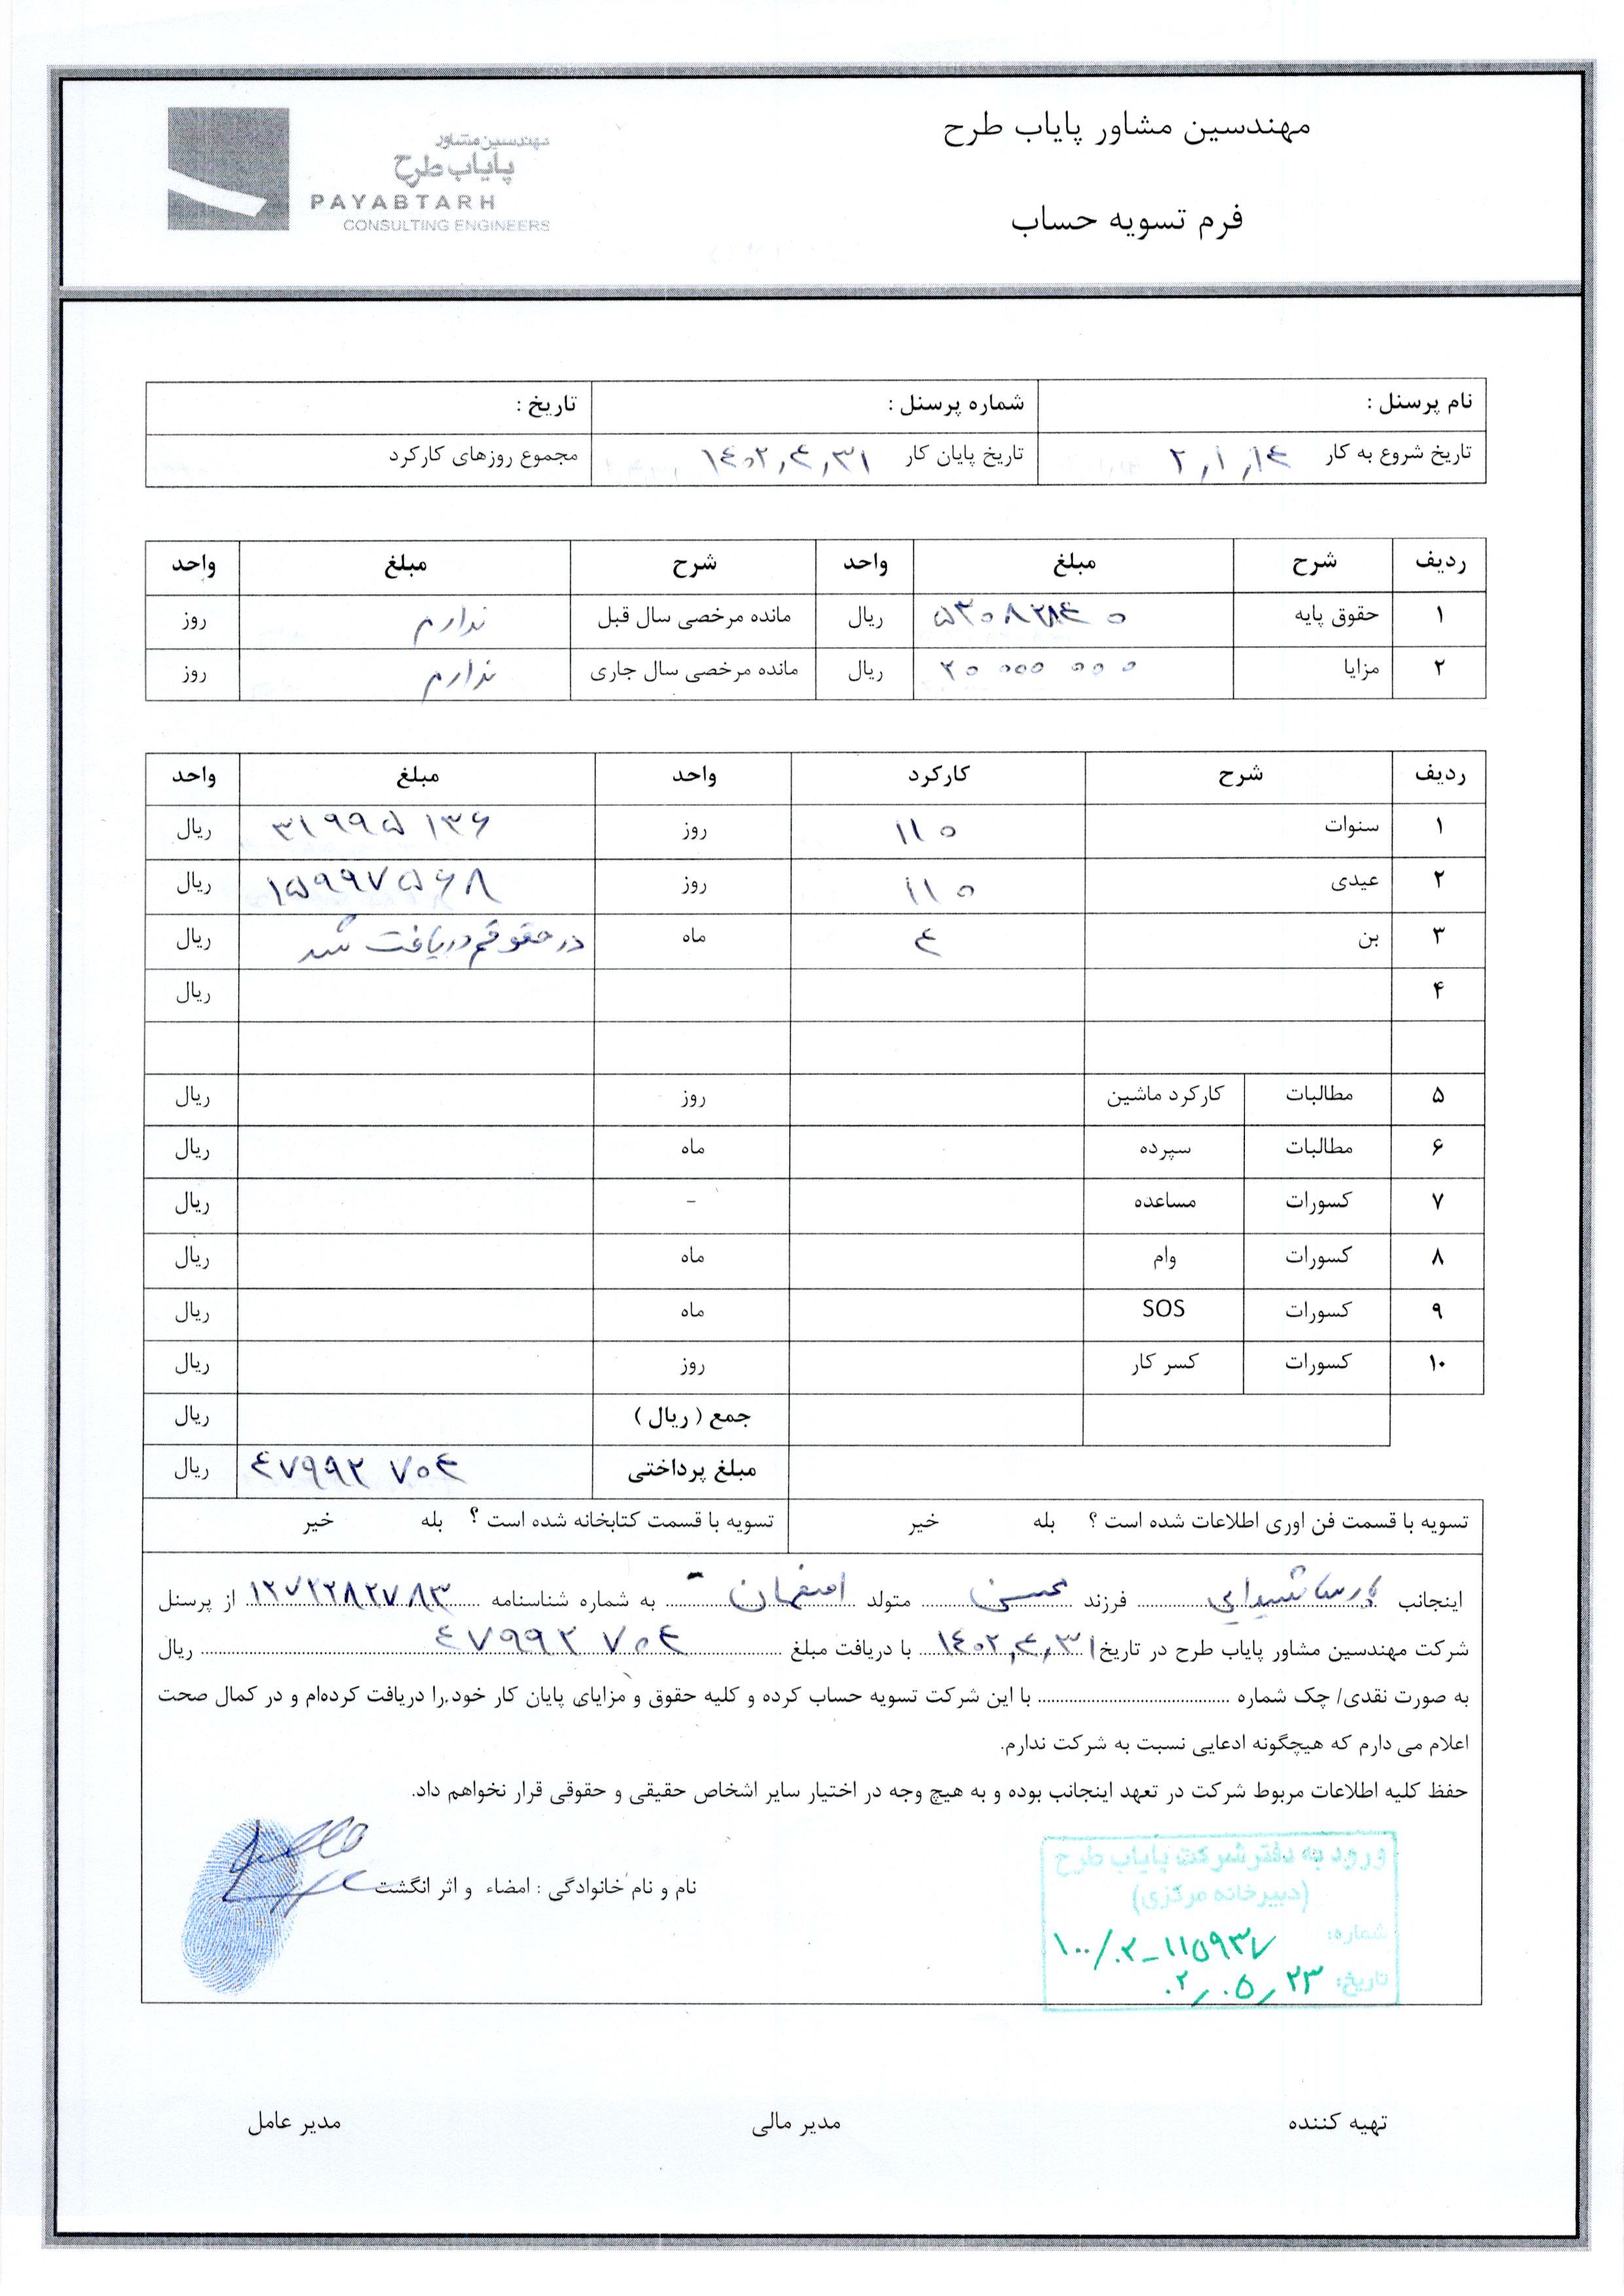 مهندسین مشاور پایاب طرح
فرم تسویه حساب
مهندسین مشاور
پایاب طرح
PAYABTARH
CONSULTING ENGINEERS
نام پرسنل : شماره پرسنل : تاریخ :
تاریخ شروع به کار ۲,۱,۱۴ تاریخ پایان کار ۱۴۰۲,۴,۳۱ مجموع روزهای کارکرد
ردیف شرح مبلغ واحد شرح مبلغ واحد
۱ حقوق پایه ۵۳۰۸۲۸۴۰ ریال مانده مرخصی سال قبل ندارم روز
۲ مزایا ۲۰ ۰۰۰ ۰۰۰ ریال مانده مرخصی سال جاری ندارم روز
ردیف شرح کارکرد واحد مبلغ واحد
۱ سنوات ۱۱۰ روز ۳۱۹۹۵۱۳۶ ریال
۲ عیدی ۱۱۰ روز ۱۵۹۹۷۵۶۸ ریال
۳ بن ۴ ماه در حقوقم دریافت شد ریال
۴ ریال
۵ مطالبات کارکرد ماشین روز ریال
۶ مطالبات سپرده ماه ریال
۷ کسورات مساعده - ریال
۸ کسورات وام ماه ریال
۹ کسورات SOS ماه ریال
۱۰ کسورات کسر کار روز ریال
جمع ( ریال ) ریال
مبلغ پرداختی ۴۷۹۹۲۷۰۴ ریال
تسویه با قسمت فن اوری اطلاعات شده است ؟ بله خیر تسویه با قسمت کتابخانه شده است ؟ بله خیر
اینجانب پارسا شیدایی فرزند محسن متولد اصفهان به شماره شناسنامه ۱۲۷۲۲۸۲۷۸۳ از پرسنل
شرکت مهندسین مشاور پایاب طرح در تاریخ ۱۴۰۲,۴,۳۱ با دریافت مبلغ ۴۷۹۹۲۷۰۴ ریال
به صورت نقدی/ چک شماره با این شرکت تسویه حساب کرده و کلیه حقوق و مزایای پایان کار خود را دریافت کرده‌ام و در کمال صحت
اعلام می دارم که هیچگونه ادعایی نسبت به شرکت ندارم.
حفظ کلیه اطلاعات مربوط شرکت در تعهد اینجانب بوده و به هیچ وجه در اختیار سایر اشخاص حقیقی و حقوقی قرار نخواهم داد.
نام و نام خانوادگی : امضاء و اثر انگشت
ورود به دفتر شرکت پایاب طرح
(دبیرخانه مرکزی)
شماره: ۱۰۰/۰۲-۱۱۵۹۳۷
تاریخ: ۰۲,۰۵,۲۳
تهیه کننده مدیر مالی مدیر عامل